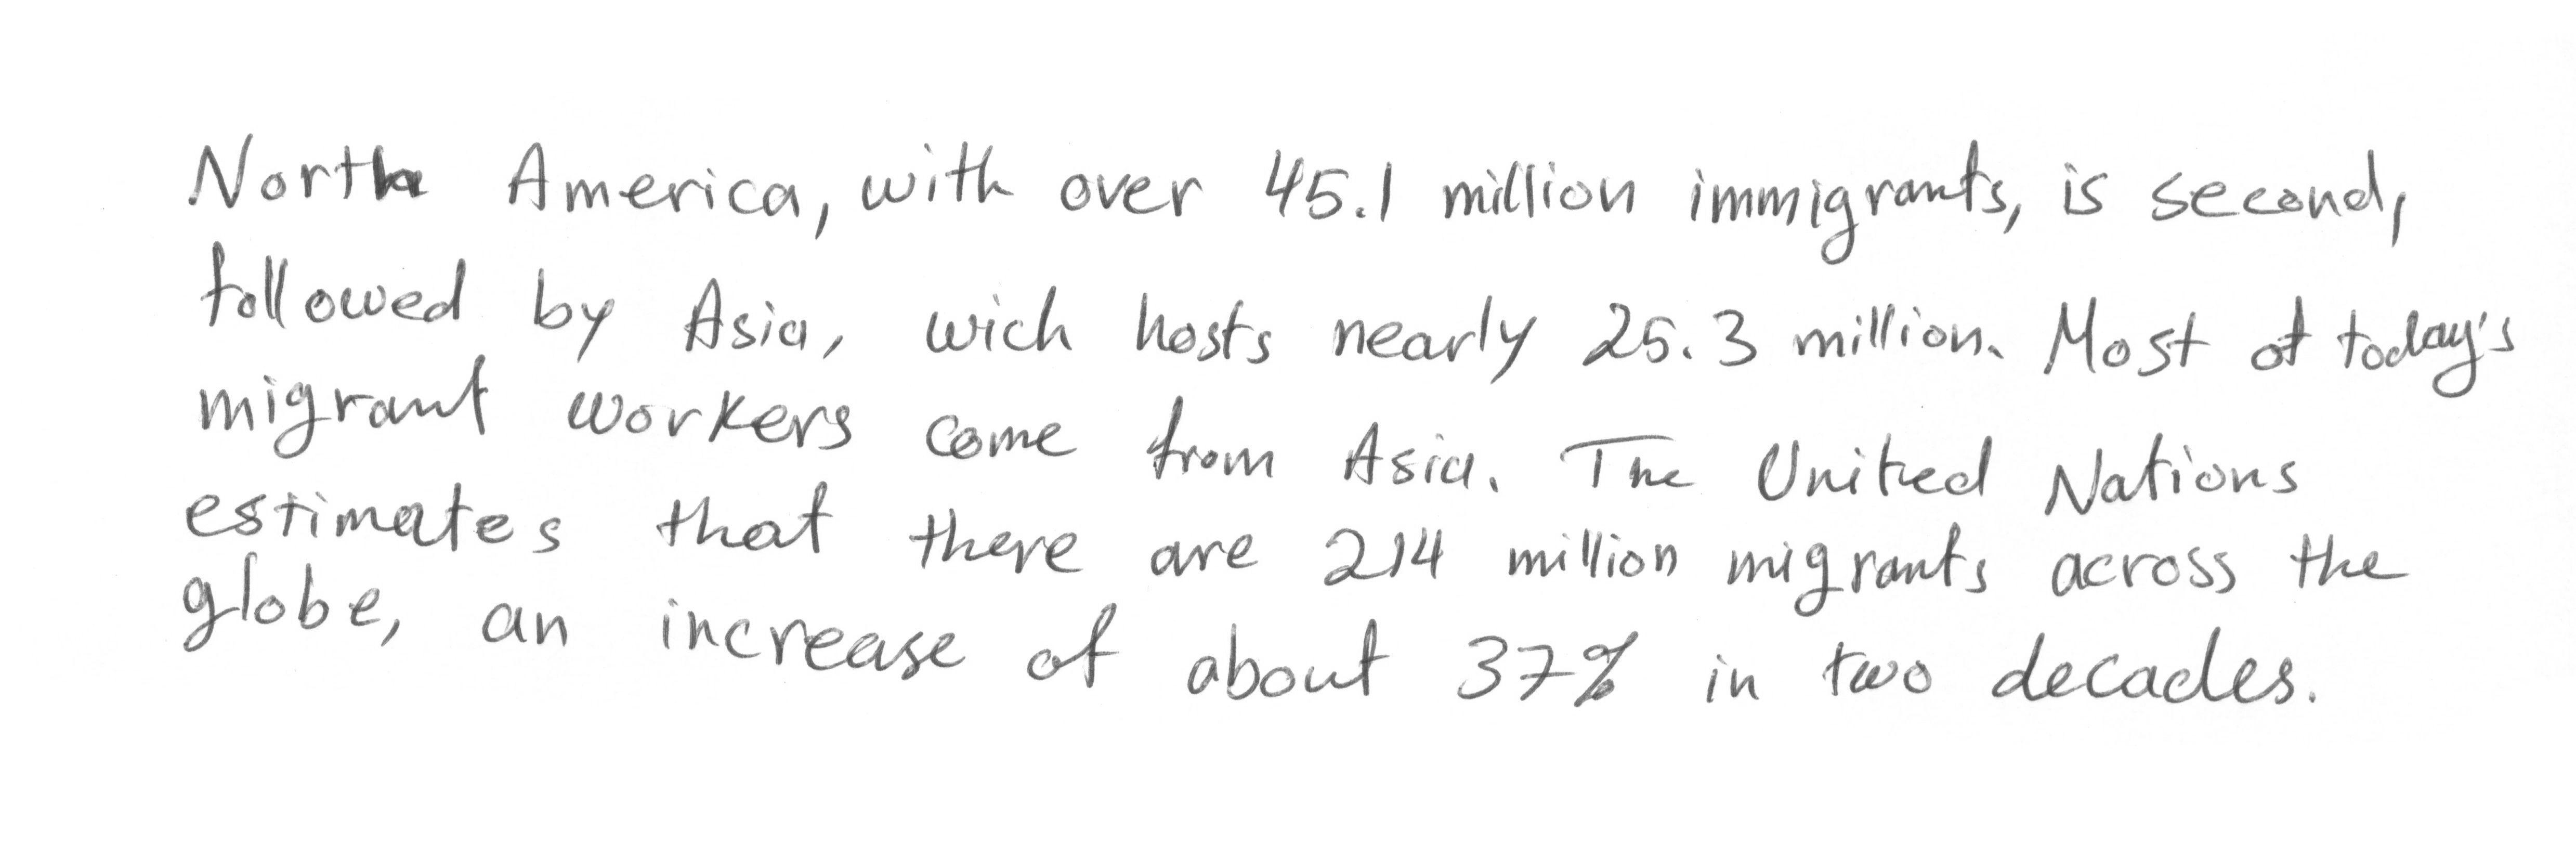 North America, with over 45.1 million immigrants, is second,
followed by Asia, wich hosts nearly 25.3 million. Most of today's
migrant workers come from Asia. The United Nations
estimates that there are 214 million migrants across the
globe, an increase of about 37% in two decades.